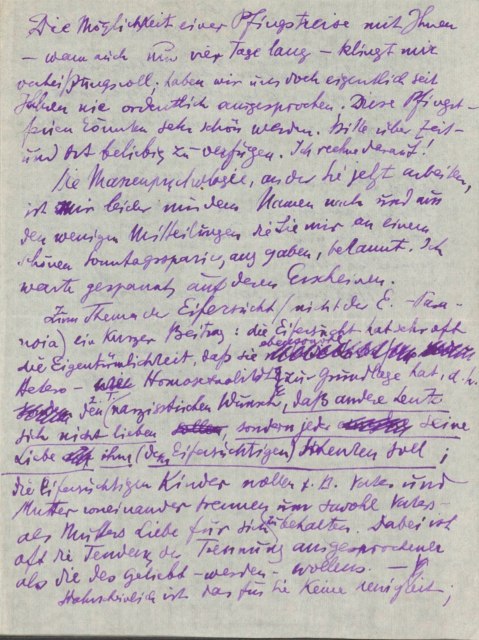 Die Möglichkeit einer Pfingstreise mit Ihnen
– wenn auch nur vier Tage lang – klingt mir
verheißungsvoll; haben wir uns doch eigentlich seit
Jahren nie ordentlich ausgesprochen. Diese Pfingst-
ferien könnten sehr schön werden. Bitte über Zeit-
und Ort beliebig zu verfügen. Ich rechne darauf!
Die Massenpsychologie, an der Sie jetzt arbeiten,
ist mir leider nur dem Namen nach und aus
den wenigen Mitteilungen die Sie mir an einem
schönen Sonntagsspaziergang gaben, bekannt. Ich
warte gespannt auf deren Erscheinen.
Zum Thema der Eifersucht (nicht der E.-Para-
noia) ein kurzer Beitrag: die Eifersucht hat sehr oft
die Eigentümlichkeit, daß sie ebensowohl
Hetero- wie Homosexualität zur Grundlage hat, d.h.
den (narzisstischen) Wunsch, daß andere Leute
sich nicht lieben sollen, sondern jeder seine
Liebe ihm (dem Eifersüchtigen) schenken soll;
die Eifersüchtigen Kinder wollen z.B. Vater und
Mutter voneinander trennen um sowohl Vaters-
als Mutters Liebe für sich zu behalten. Dabei ist
oft die Tendenz der Trennung ausgesprochener
als die des geliebt-werden-wollens. –
Wahrscheinlich ist das für Sie keine neuigkeit;